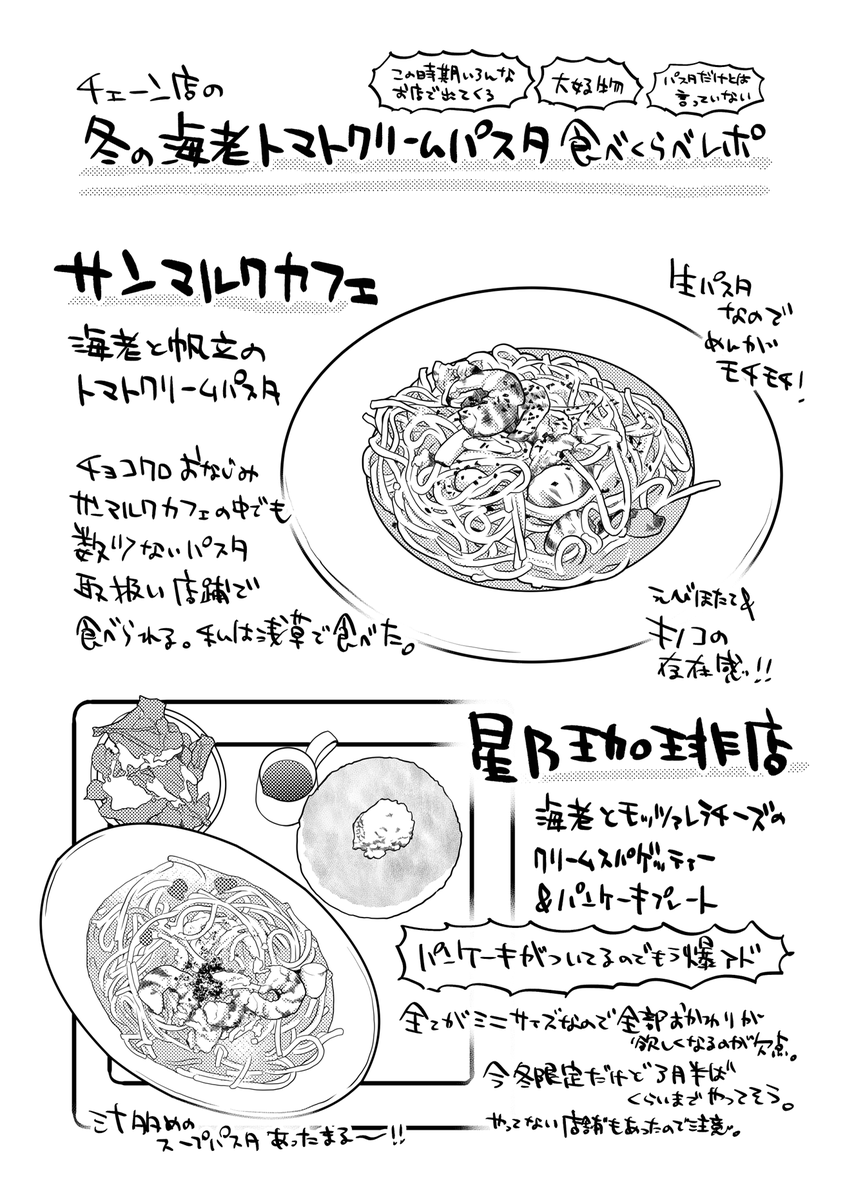 チェーン店の
この時期いろんな
お店で出てくる
大好物
パスタだけとは
言っていない
冬の海老トマトクリームパスタ食べくらべレポ
サンマルクカフェ
海老と帆立の
トマトクリームパスタ
生パスタ
なので
めんが
モチモチ!
チョコクロおなじみ
サンマルクカフェの中でも
数少ないパスタ
取扱い店舗で
食べられる。私は浅草で食べた。
えびほたて&
キノコの
存在感ッ!!
星乃珈琲店
海老とモッツァレラチーズの
クリームスパゲッティー
&パンケーキプレート
パンケーキがついてるのでもう爆アド
全てがミニサイズなので全部おかわりが
欲しくなるのが欠点。
今冬限定だけど3月半ば
くらいまでやってそう。
やってない店舗もあったので注意。
汁多めの
スープパスタあったまる〜!!